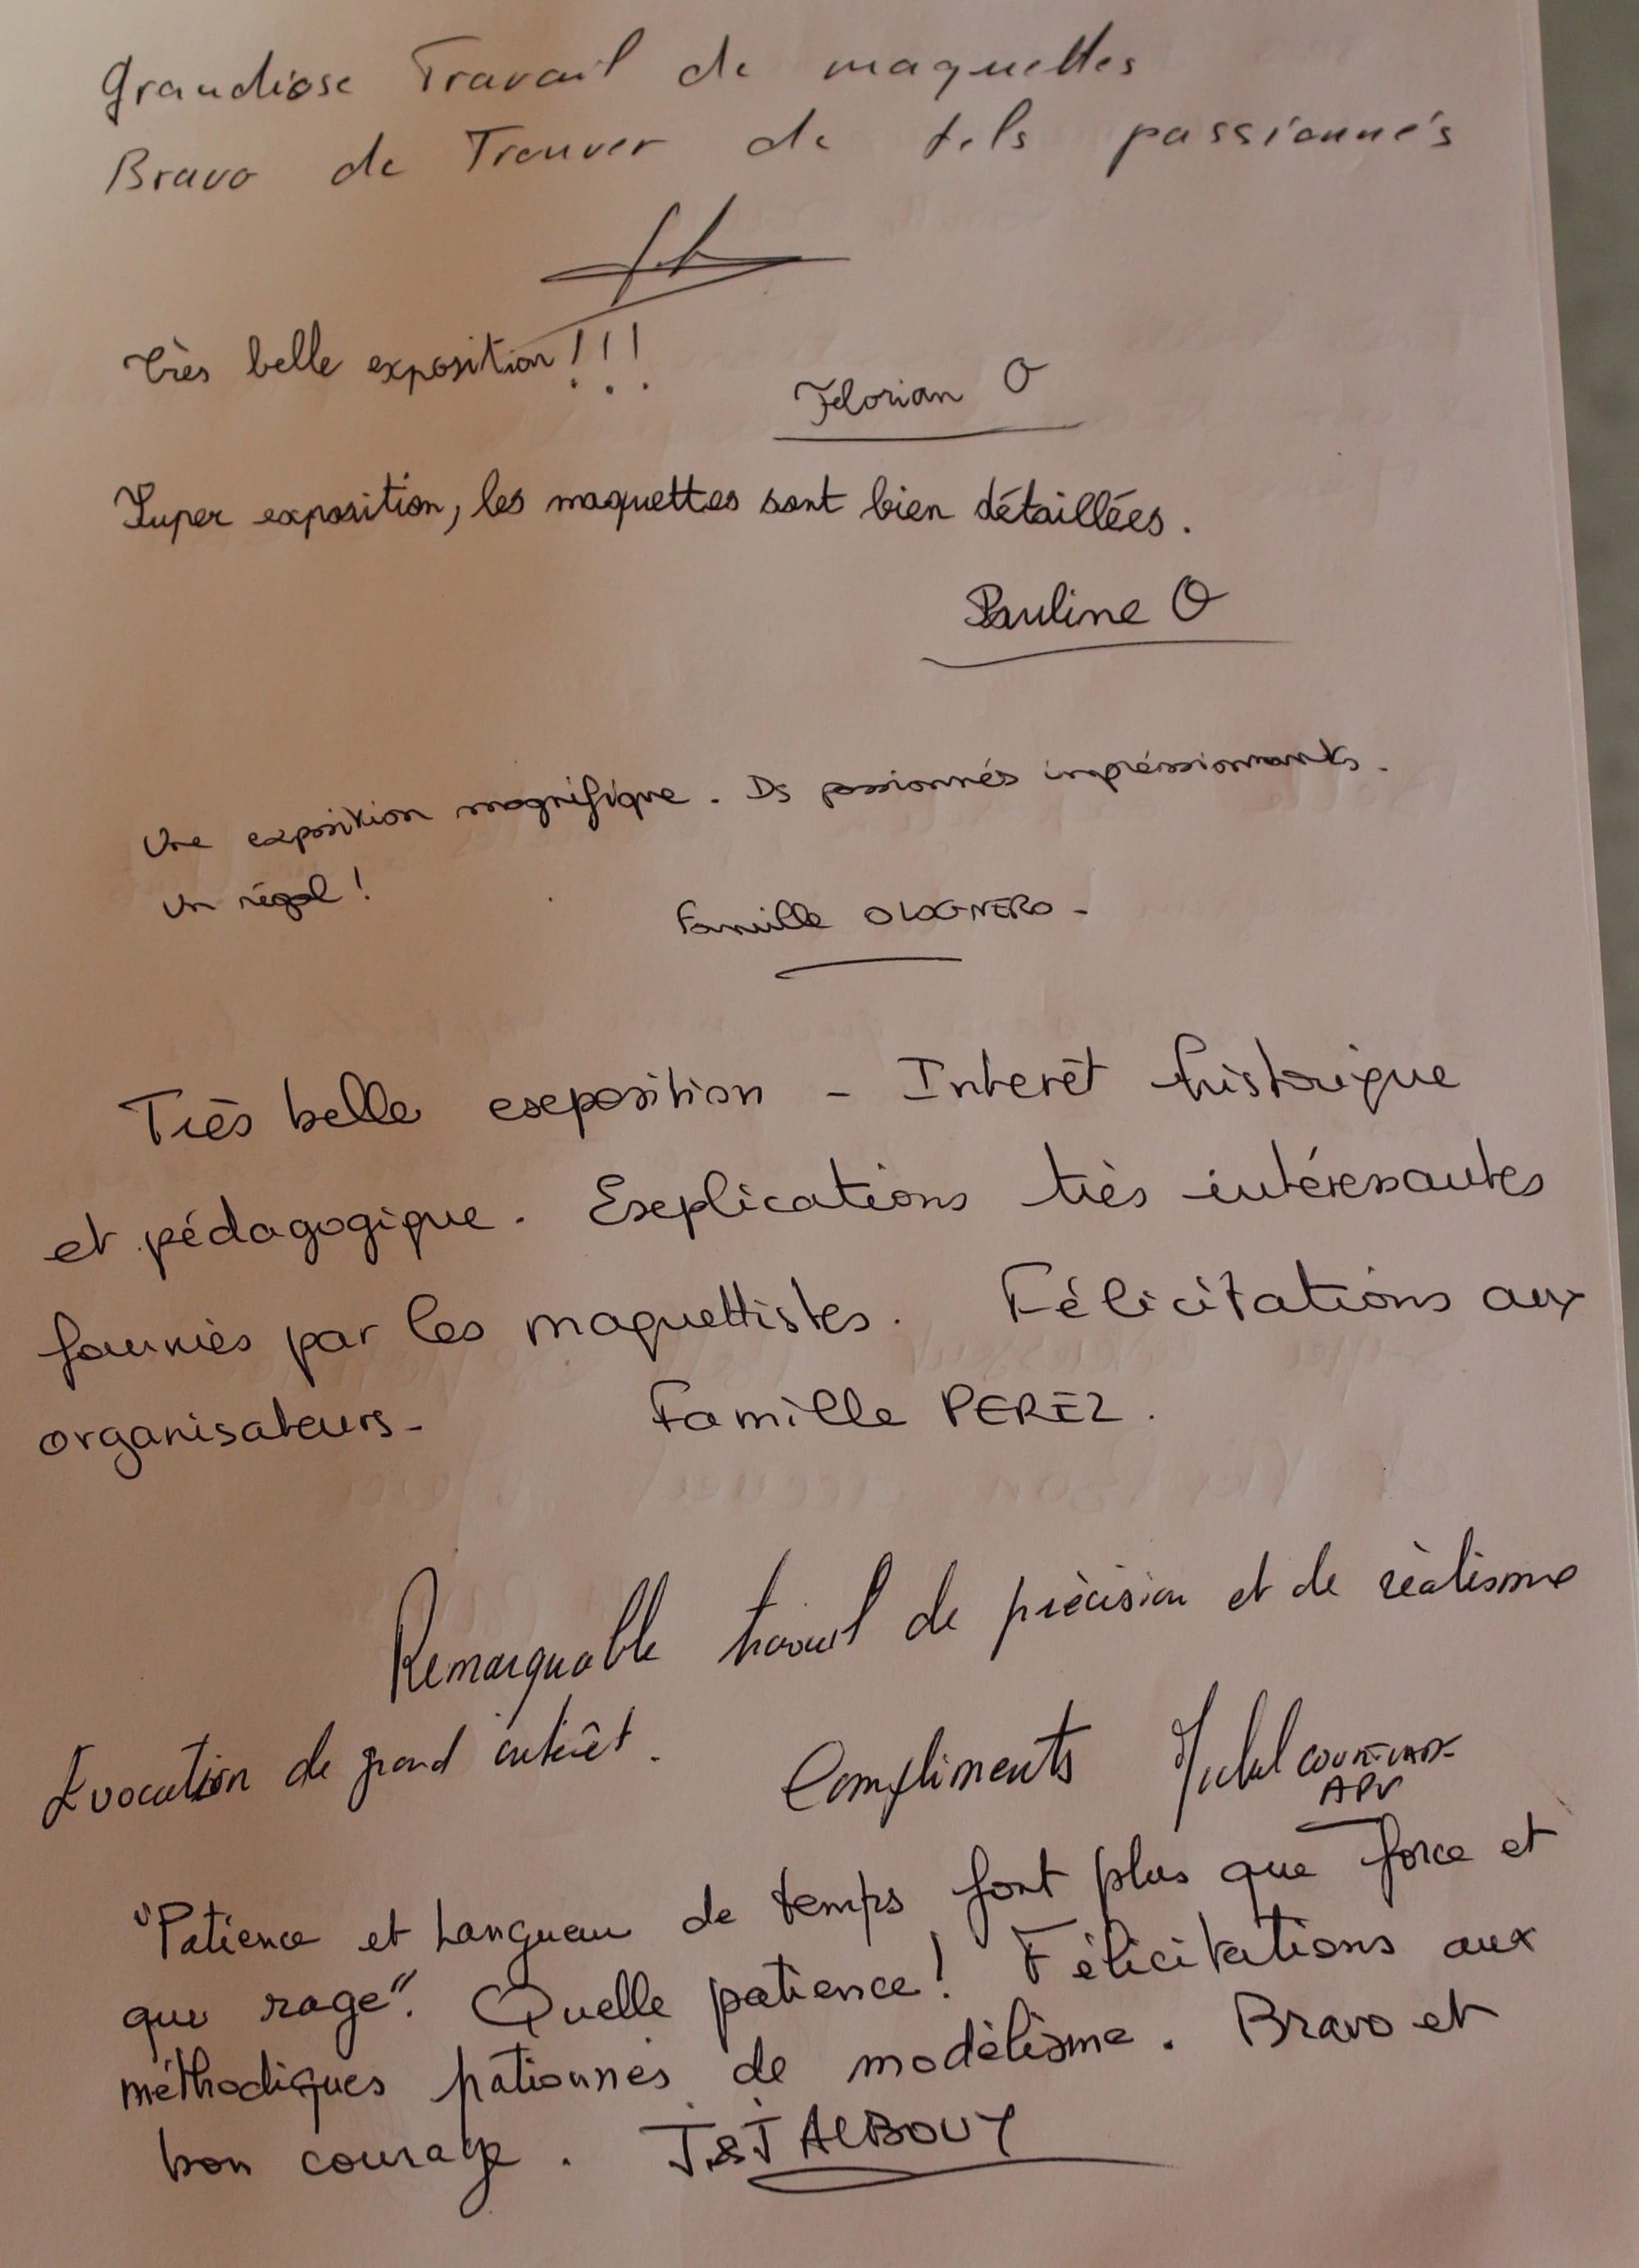 Grandiose Travail de maquettes
Bravo de Trouver de tels passionnés
Très belle exposition!!!
Florian O
Super exposition, les maquettes sont bien détaillées.
Pauline O
Une exposition magnifique. Ds passionnés impréssionnants.
Un régal!
Famille OLOGNERO-
Très belle exposition - Interêt historique
et pédagogique. Explications très intéressantes
fournies par les maquettistes. Félicitations aux
organisateurs-
Famille PEREZ.
Remarquable travail de précision et de réalisme
Evocation de grand intérêt. Compliments
APV
"Patience et Longueur de temps font plus que force et
que rage". Quelle patience! Félicitations aux
méthodiques pationnés de modélisme. Bravo et
bon courage. J&J ALBOUY